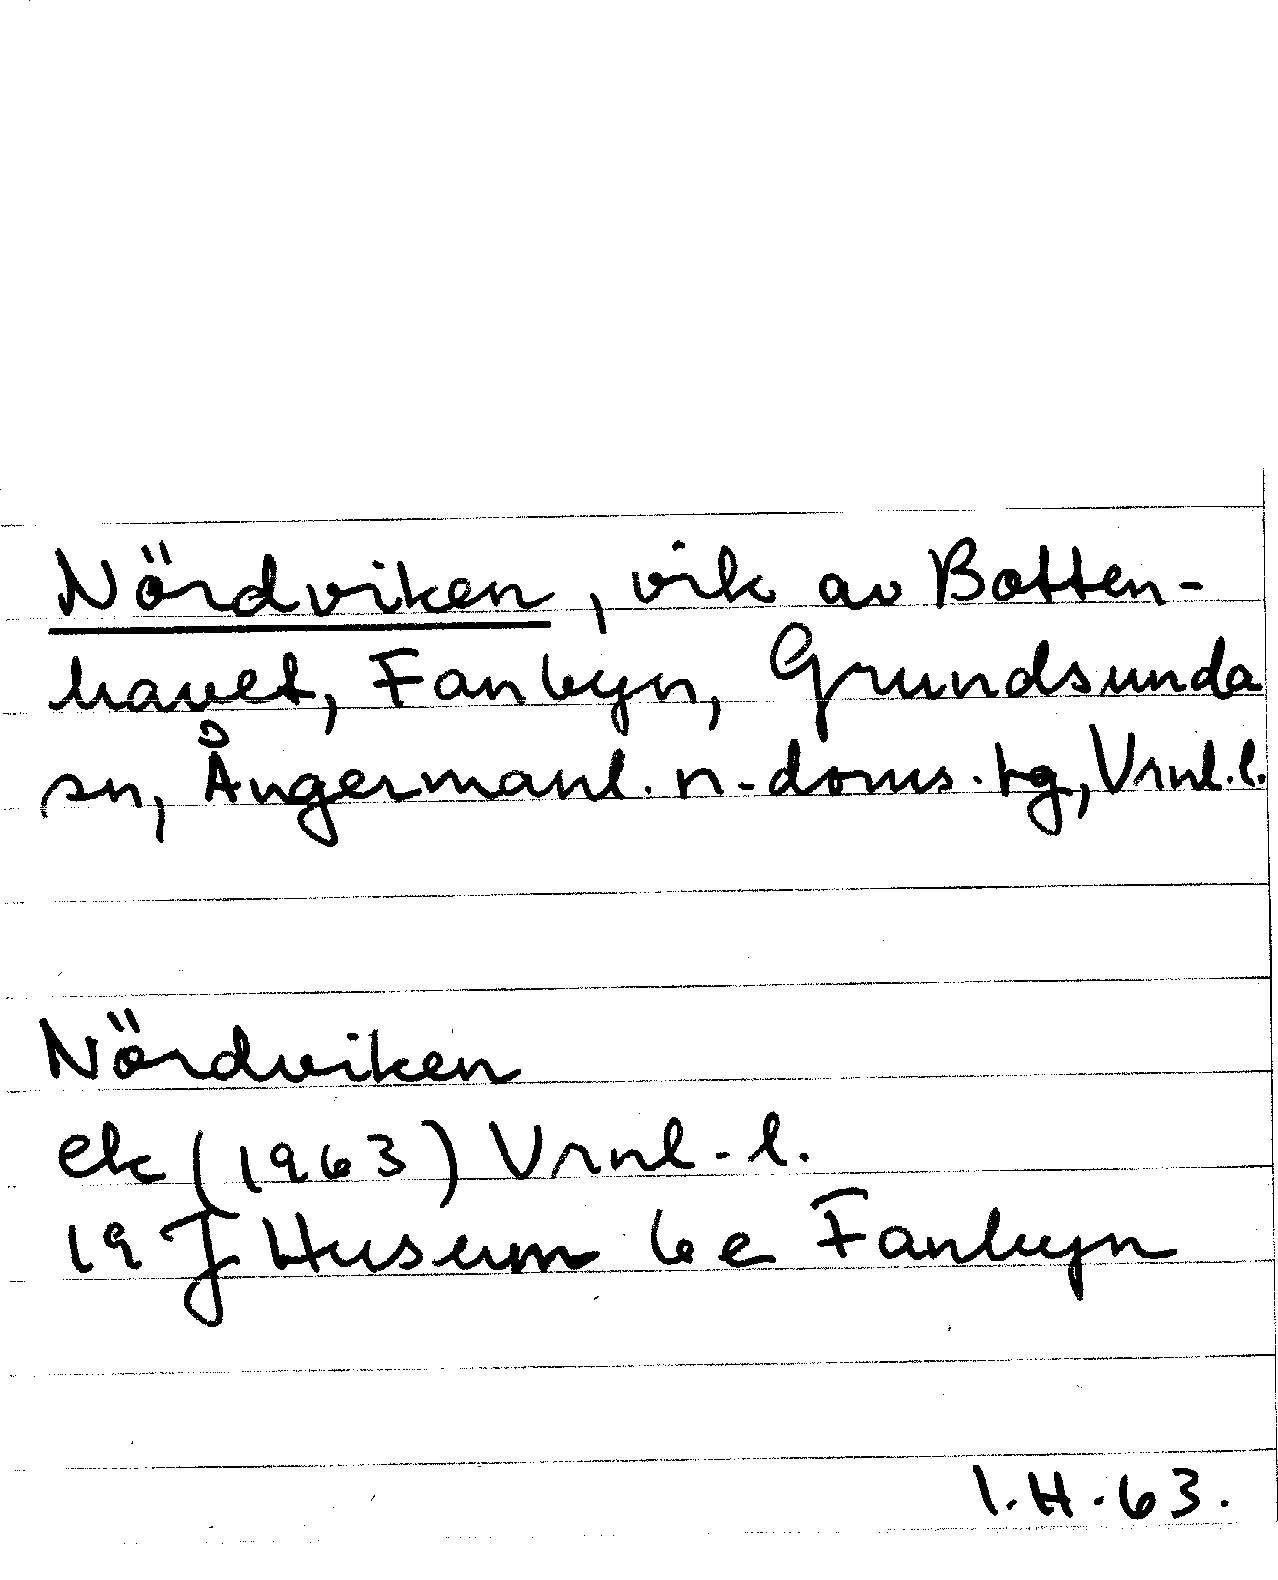 Nördviken, vik av Botten-
havet, Fanbyn, Grundsunda
sn, Ångermanl. n. doms. tg, Vrnl. l.
Nördviken
ek (1963) Vrnl. l.
19 J Husum 6e Fanbyn
I.H. 63.